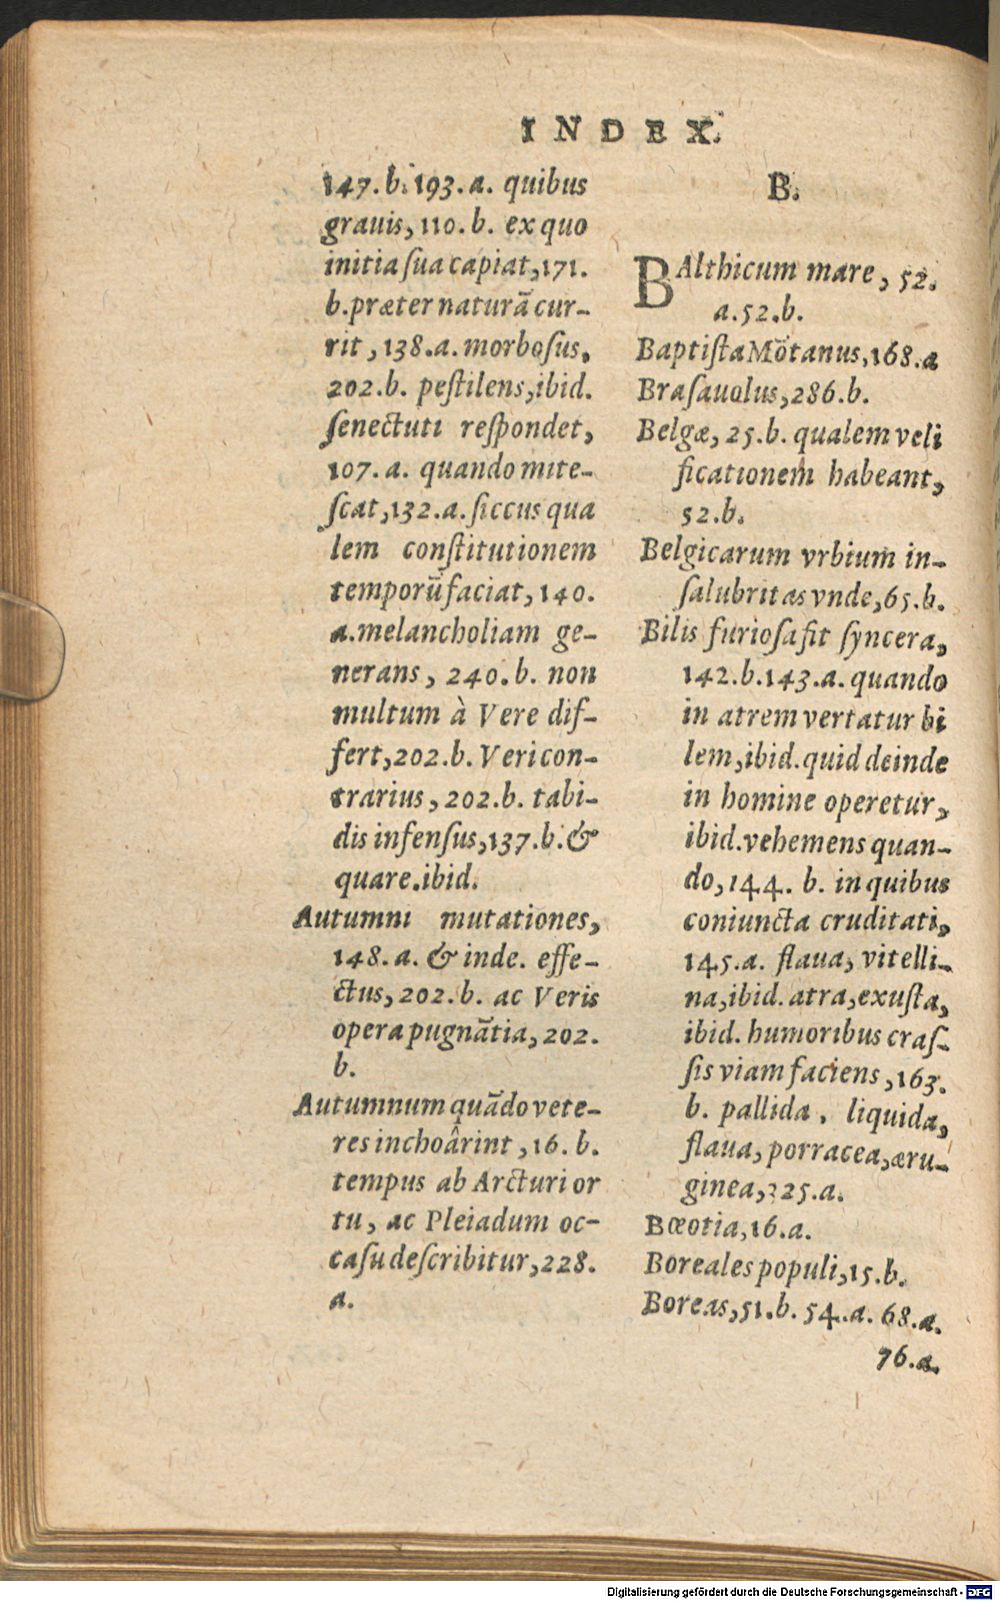 INDEX.
147.b. 193.a. quibus
grauis, 110.b. ex quo
initia ſua capiat, 171.
b. præter naturā cur-
rit, 138.a. morboſus,
202.b. peſtilens, ibid.
ſenectuti reſpondet,
107.a. quando mite-
ſcat, 132.a. ſiccus qua
lem conſtitutionem
temporū faciat, 140.
a. melancholiam ge-
nerans, 240.b. non
multum à Vere dif-
fert, 202.b. Veri con-
trarius, 202.b. tabi-
dis infenſus, 137.b. &
quare. ibid.
Autumni mutationes,
148.a. & inde. effe-
ctus, 202.b. ac Veris
opera pugnātia, 202.
b.
Autumnum quādo vete-
res inchoârint, 16.b.
tempus ab Arcturi or
tu, ac Pleiadum oc-
caſu deſcribitur, 228.
a.
B.
BAlthicum mare, 52.
a. 52.b.
Baptiſta Mōtanus, 168.a
Braſauolus, 286.b.
Belgæ, 25.b. qualem veli
ficationem habeant,
52.b.
Belgicarum vrbium in-
ſalubritas vnde, 65.b.
Bilis furioſa fit ſyncera,
142.b. 143.a. quando
in atrem vertatur bi
lem, ibid. quid deinde
in homine operetur,
ibid. vehemens quan-
do, 144.b. in quibus
coniuncta cruditati,
145.a. flaua, vitelli-
na, ibid. atra, exuſta,
ibid. humoribus craſ-
ſis viam faciens, 163.
b. pallida, liquida,
flaua, porracea, æru-
ginea, 225.a.
Bœotia, 16.a.
Boreales populi, 15.b.
Boreas, 51.b. 54.a. 68.a.
76.a.
Digitalisierung gefördert durch die Deutsche Forschungsgemeinschaft - DFG